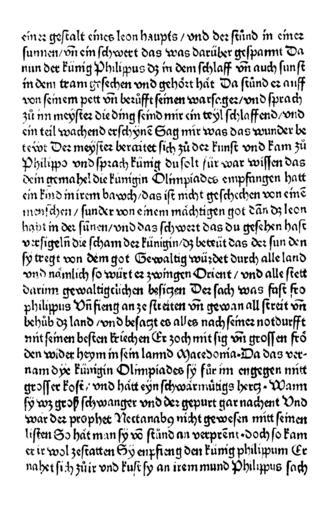 einer gestalt eines leon haupts / und der stůnd in einer
sunnen / vñ ein schwert das was darüber gespannt Da
nun der künig Philippus dz in dem schlaff vñ auch sunst
in dem tram gesehen und gehört hat Da stůnd er auff
von seinem pett vñ berüfft seinen warsager / und sprach
zů im meyster die ding seind mir ein teyl schlaffend / und
ein teil wachend erschyne͂ Sag mir was das wunder be
teüt Der meyster bereitet sich zů der kunst und kam zů
Philippo und sprach künig du solt für war wissen das
dein gemahel die künigin Olimpiades empfangen hatt
ein kind in irem bawch / das ist nicht geschechen von eine͂
menschen / sunder von einem mächtigen got dañ dz leon
habt in der sůnen / und das schwert das du gesehen hast
versigelñ die scham der künigin / dz betteüt das der sun den
sy tregt von dem got Gewaltig würdet durch alle land
und nämlich so würt er zwingen Orient / und alle stett
darinn gewaltigclichen besitzen Der sach was fast fro
philippus Vñ fieng an ze streiten vñ gewan all streit vñ
behůb dz land / und besatzt es alles nach seiner notdurfft
mit seinen besten kriechen Er zoch mit sig vñ grossen frö
den wider heym in sein lannd Macedonia - Da das ver-
nam dye künigin Olimpiades sy für im engegen mitt
grosser kost / und hätt eyn schwärmütigs hertz - Wann
sy wz groß schwanger und der gepurt gar nachent Und
war der prophet Nectanabꝯ nicht gewesen mitt seinen
listen So hät man sy võ stůnd an verprent - doch so kam
er ir wol ze statten Sy enpfieng den künig philippum Er
nahet sich zů ir und kust sy an irem mund Philippus sach